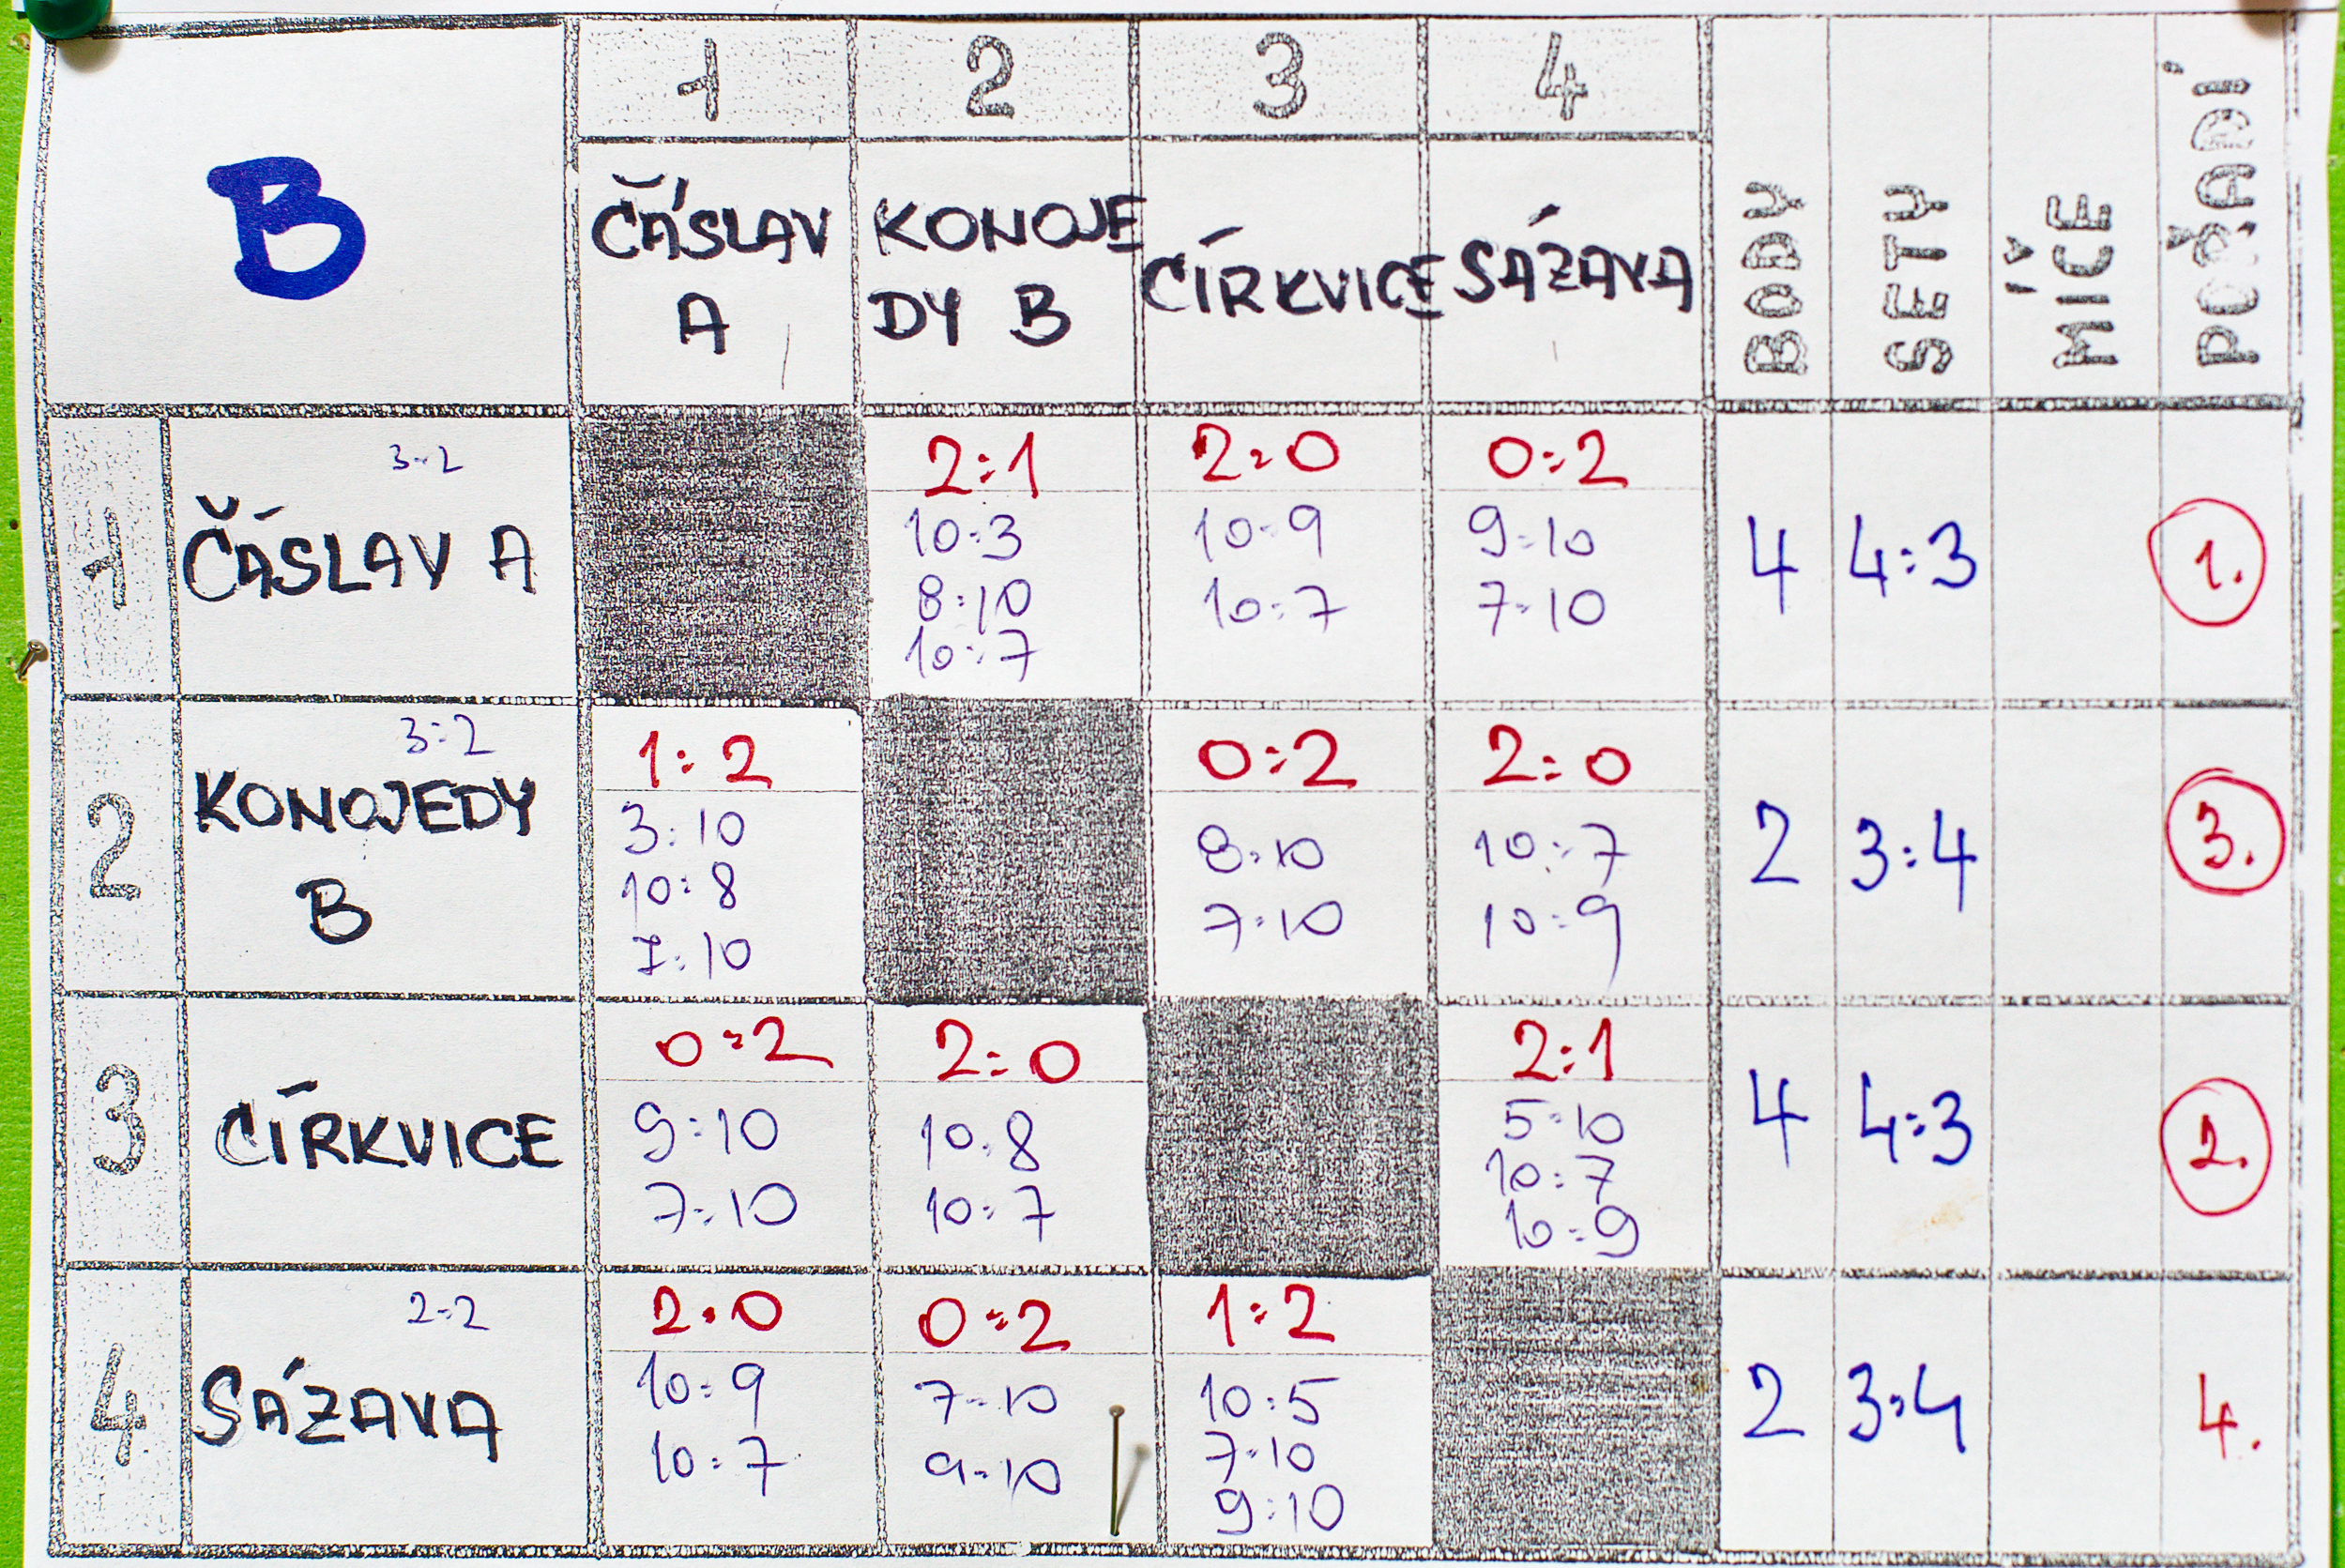 B
1 2 3 4
ČÁSLAV A
KONOJE
DY B
CÍRKVICE
SÁZAVA
BODY
SETY
MÍČE
POŘADÍ
1
3:2
ČÁSLAV A
2:1
10:3
8:10
10:7
2:0
10:9
10:7
0:2
9:10
7:10
4
4:3
1.
2
3:2
KONOJEDY
B
1:2
3:10
10:8
7:10
0:2
8:10
7:10
2:0
10:7
10:9
2
3:4
3.
3
CÍRKVICE
0:2
9:10
7:10
2:0
10:8
10:7
2:1
5:10
10:7
10:9
4
4:3
2.
4
2:2
SÁZAVA
2:0
10:9
10:7
0:2
7:10
9:10
1:2
10:5
7:10
9:10
2
3:4
4.